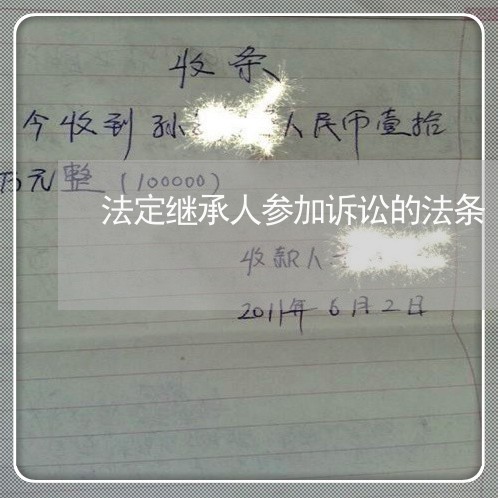 收条
今收到孙 人民币壹拾
万元整(100000)
法定继承人参加诉讼的法条
收款人
2011年6月2日